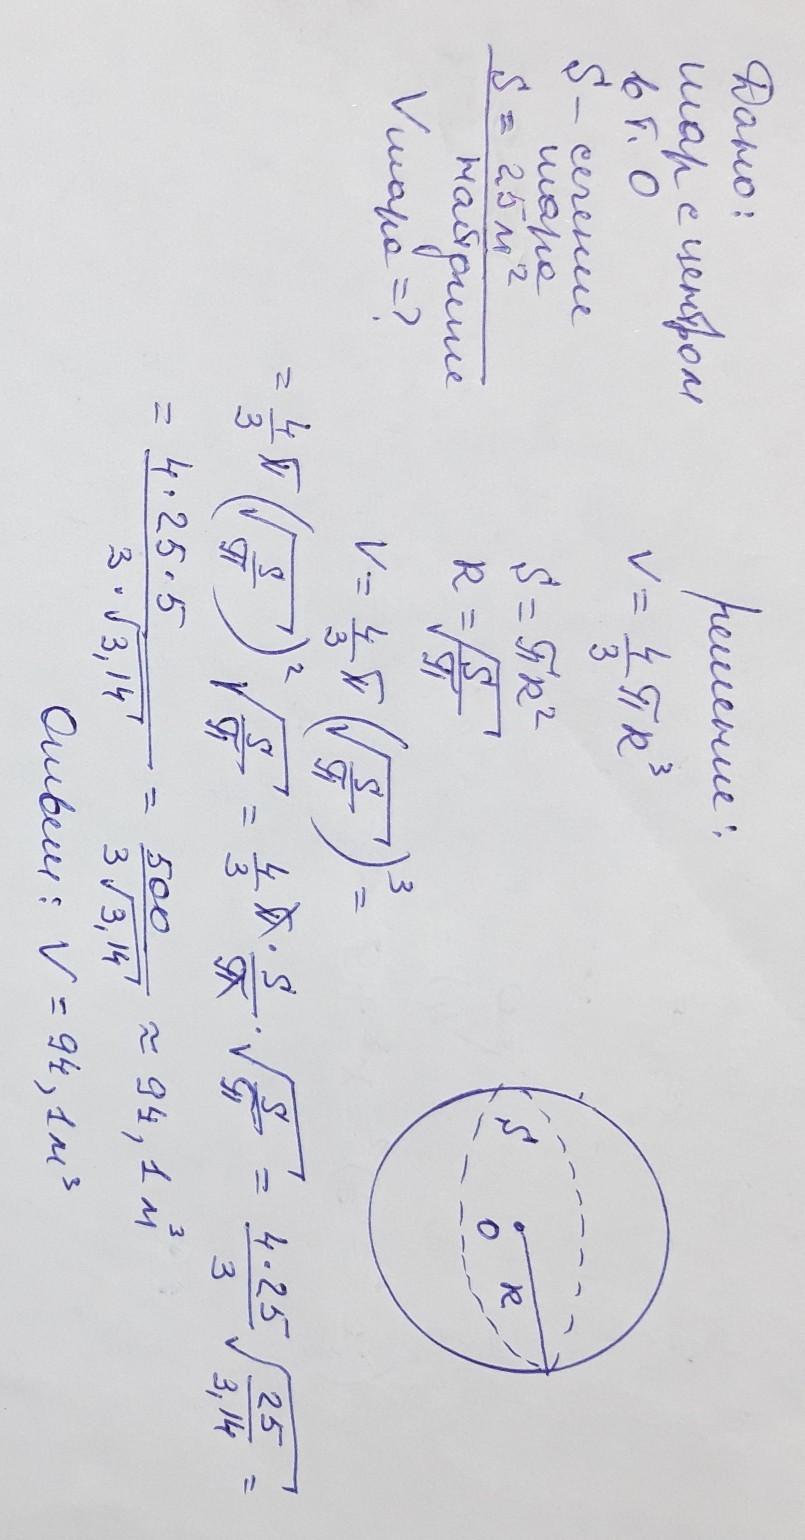 Дано:
шар с центром
в т. О
S – сечение
шара
S = 25 м²
Найдите
Vшара = ?
решение:
V = 4/3 πR³
S = πR²
R = √(S/π)
V = 4/3 π (√(S/π))³ =
= 4/3 π (√(S/π))² √(S/π) = 4/3 π · S/π · √(S/π) = (4·25)/3 √(25/3,14) =
= (4·25·5)/(3·√3,14) = 500/(3√3,14) ≈ 94,1 м³
Ответ: V = 94,1 м³
S
О
R